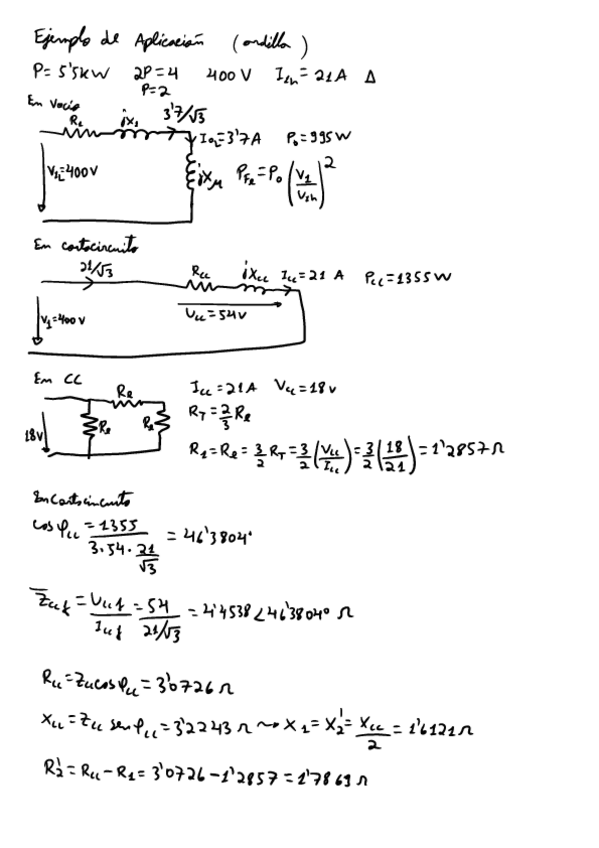 Ejemplo de Aplicación (ardilla)
P= 5'5kW 2P=4 400 V I1n= 21A Δ
P=2
En Vacío
R1 jX1 3'7/√3
I0L=3'7A P0=995W
V1L=400V jXM PFe=P0 (V1/V1n)²
En cortocircuito
21/√3 Rcc jXcc Icc=21 A Pcc=1355W
V1=400V Ucc=54V
En CC
Rl Icc=21A Vcc=18v
18V Rl Rl RT=2/3 Rl
R1=Rl= 3/2 RT= 3/2 (Vcc/Icc)= 3/2 (18/21)=1'2857Ω
En Cortocircuito
cos φcc = 1355/(3·54·21/√3) = 46'3804°
Zccf = Uccf/Iccf = 54/(21/√3) = 4'4538∠46'3804° Ω
Rcc=Zcccosφcc=3'0726Ω
Xcc=Zcc senφcc=3'2243Ω ⇝ X1=X2'=Xcc/2=1'6121Ω
R2'=Rcc-R1=3'0726-1'2857=1'7869Ω